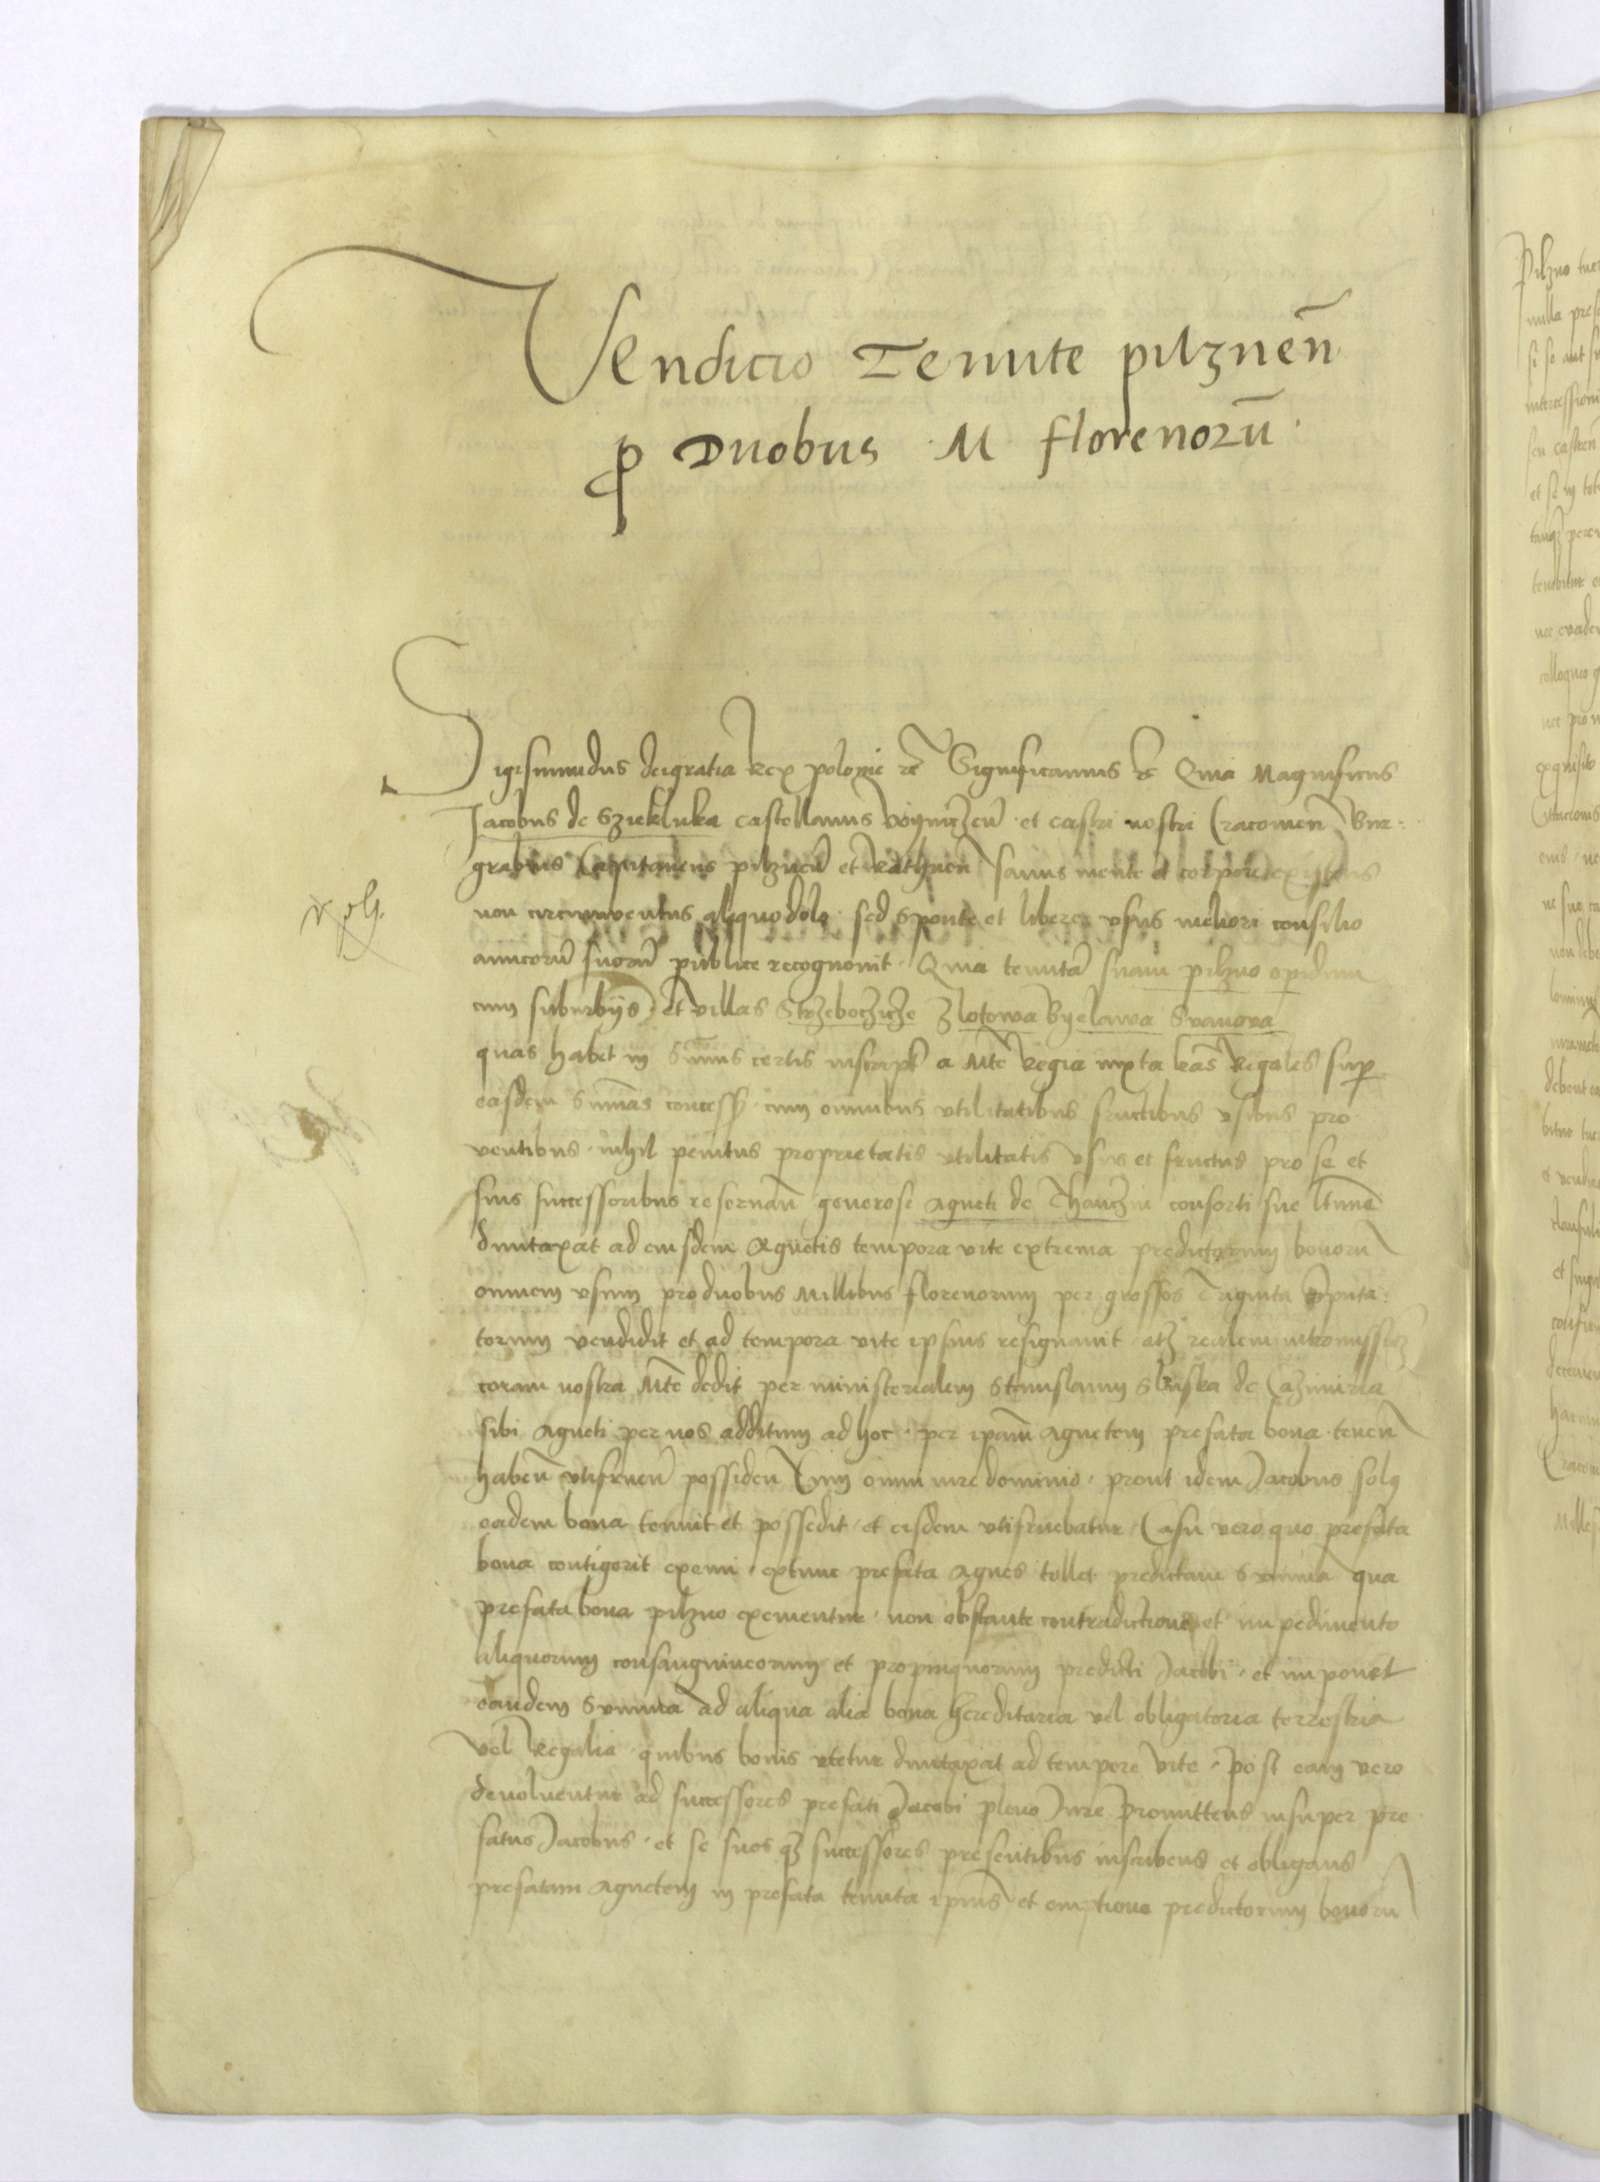 Vendicio Tenute pilznen̄
ꝓ Duobus M florenorū
Sigismundus deigratia Rex polonie rc̄ Significamus rc̄ Quia Magnificus
Jacobus de Sziekluka castellanus Voyniczen̄ et castri nostri Cracouien̄ Bur-
grabius Capitaneus pilznen̄ et Rathnen̄ sanus mente et corpore existens
non circumuentus aliquo dolo sed sponte et libere vsus meliori consilio
amicorū suorū publice recognouit Quia tenutā suam pilzno opidum
cum suburbijs et villas Strzeboczicze Zlotowa Byelawa Svanova
quas habet in Sūmis certis inscript a Mte Regia iuxta lras Regales sup
easdem Sūmas concess cum omnibus vtilitatibus fructibus vsibus pro
ventibus nihil penitus proprietatis vtilitatis vsus et fructus pro se et
suis successoribus reseruan̄ generose Agneti de Thanczin consorti sue ltime
duntaxat ad eiusdem Agnetis tempora vite extrema predictorum bonorū
omnem vsum pro duobus Millibus florenorum per grossos Triginta cōputa-
torum vendidit et ad tempora vite ipsius resignauit atqȝ realem intromissioneȝ
coram nostra Mte dedit per ministerialem Stanislaum de Cazimiria
sibi Agneti per nos additum ad hoc per ipam Agnetem prefata bona tenen̄
haben̄ vtifruen̄ possiden̄ Cum omni iure dominio prout idem Jacobus solus
eadem bona tenuit et possedit et eisdem vtifruebatur Casu vero quo prefata
bona contigerit exemi extunc prefata Agnes tollet predictam Summā qua
prefata bona pilzno exementur non obstante contradictione et impedimento
aliquorum consanguineorum et propinquorum predicti Jacobi et imponet
eandem Summā ad aliqua alia bona hereditaria vel obligatoria terrestria
vel Regalia quibus bonis vtetur duntaxat ad tempora vite post eam vero
deuoluentur ad successores prefati Jacobi pleno Jure Promittens insuper pre
fatus Jacobus et se suos qȝ successores presentibus inscribens et obligans
prefatam Agnetem in prefata tenuta ipius et emptione predictorum bonorū